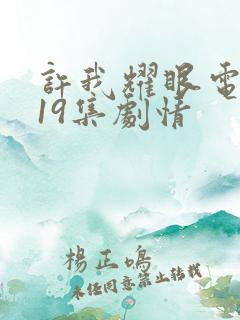 許我耀眼電
19集劇情
楊正鳴
未任同意禁止转载